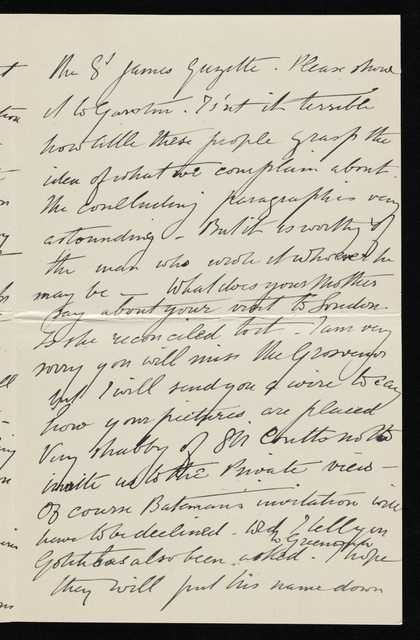 the St James Gazette. Please show
it to Garstin. Is'nt it terrible
how little these people grasp the
idea of what we complain about.
The concluding paragraph is very
astounding – But it is worthy of
the man who wrote it whoever he
may be – What does your Mother
say about your visit to London.
Is she reconciled to it – I am very
sorry you will miss the Grosvenor
but I will send you a wire to say
how your pictures are placed
Very shabby of Sir Coutts not to
invite us to the Private view –
Of course Bateman's invitation will
have to be declined – Did I tell you
Gotch has also been asked. I hope
they will put his name down